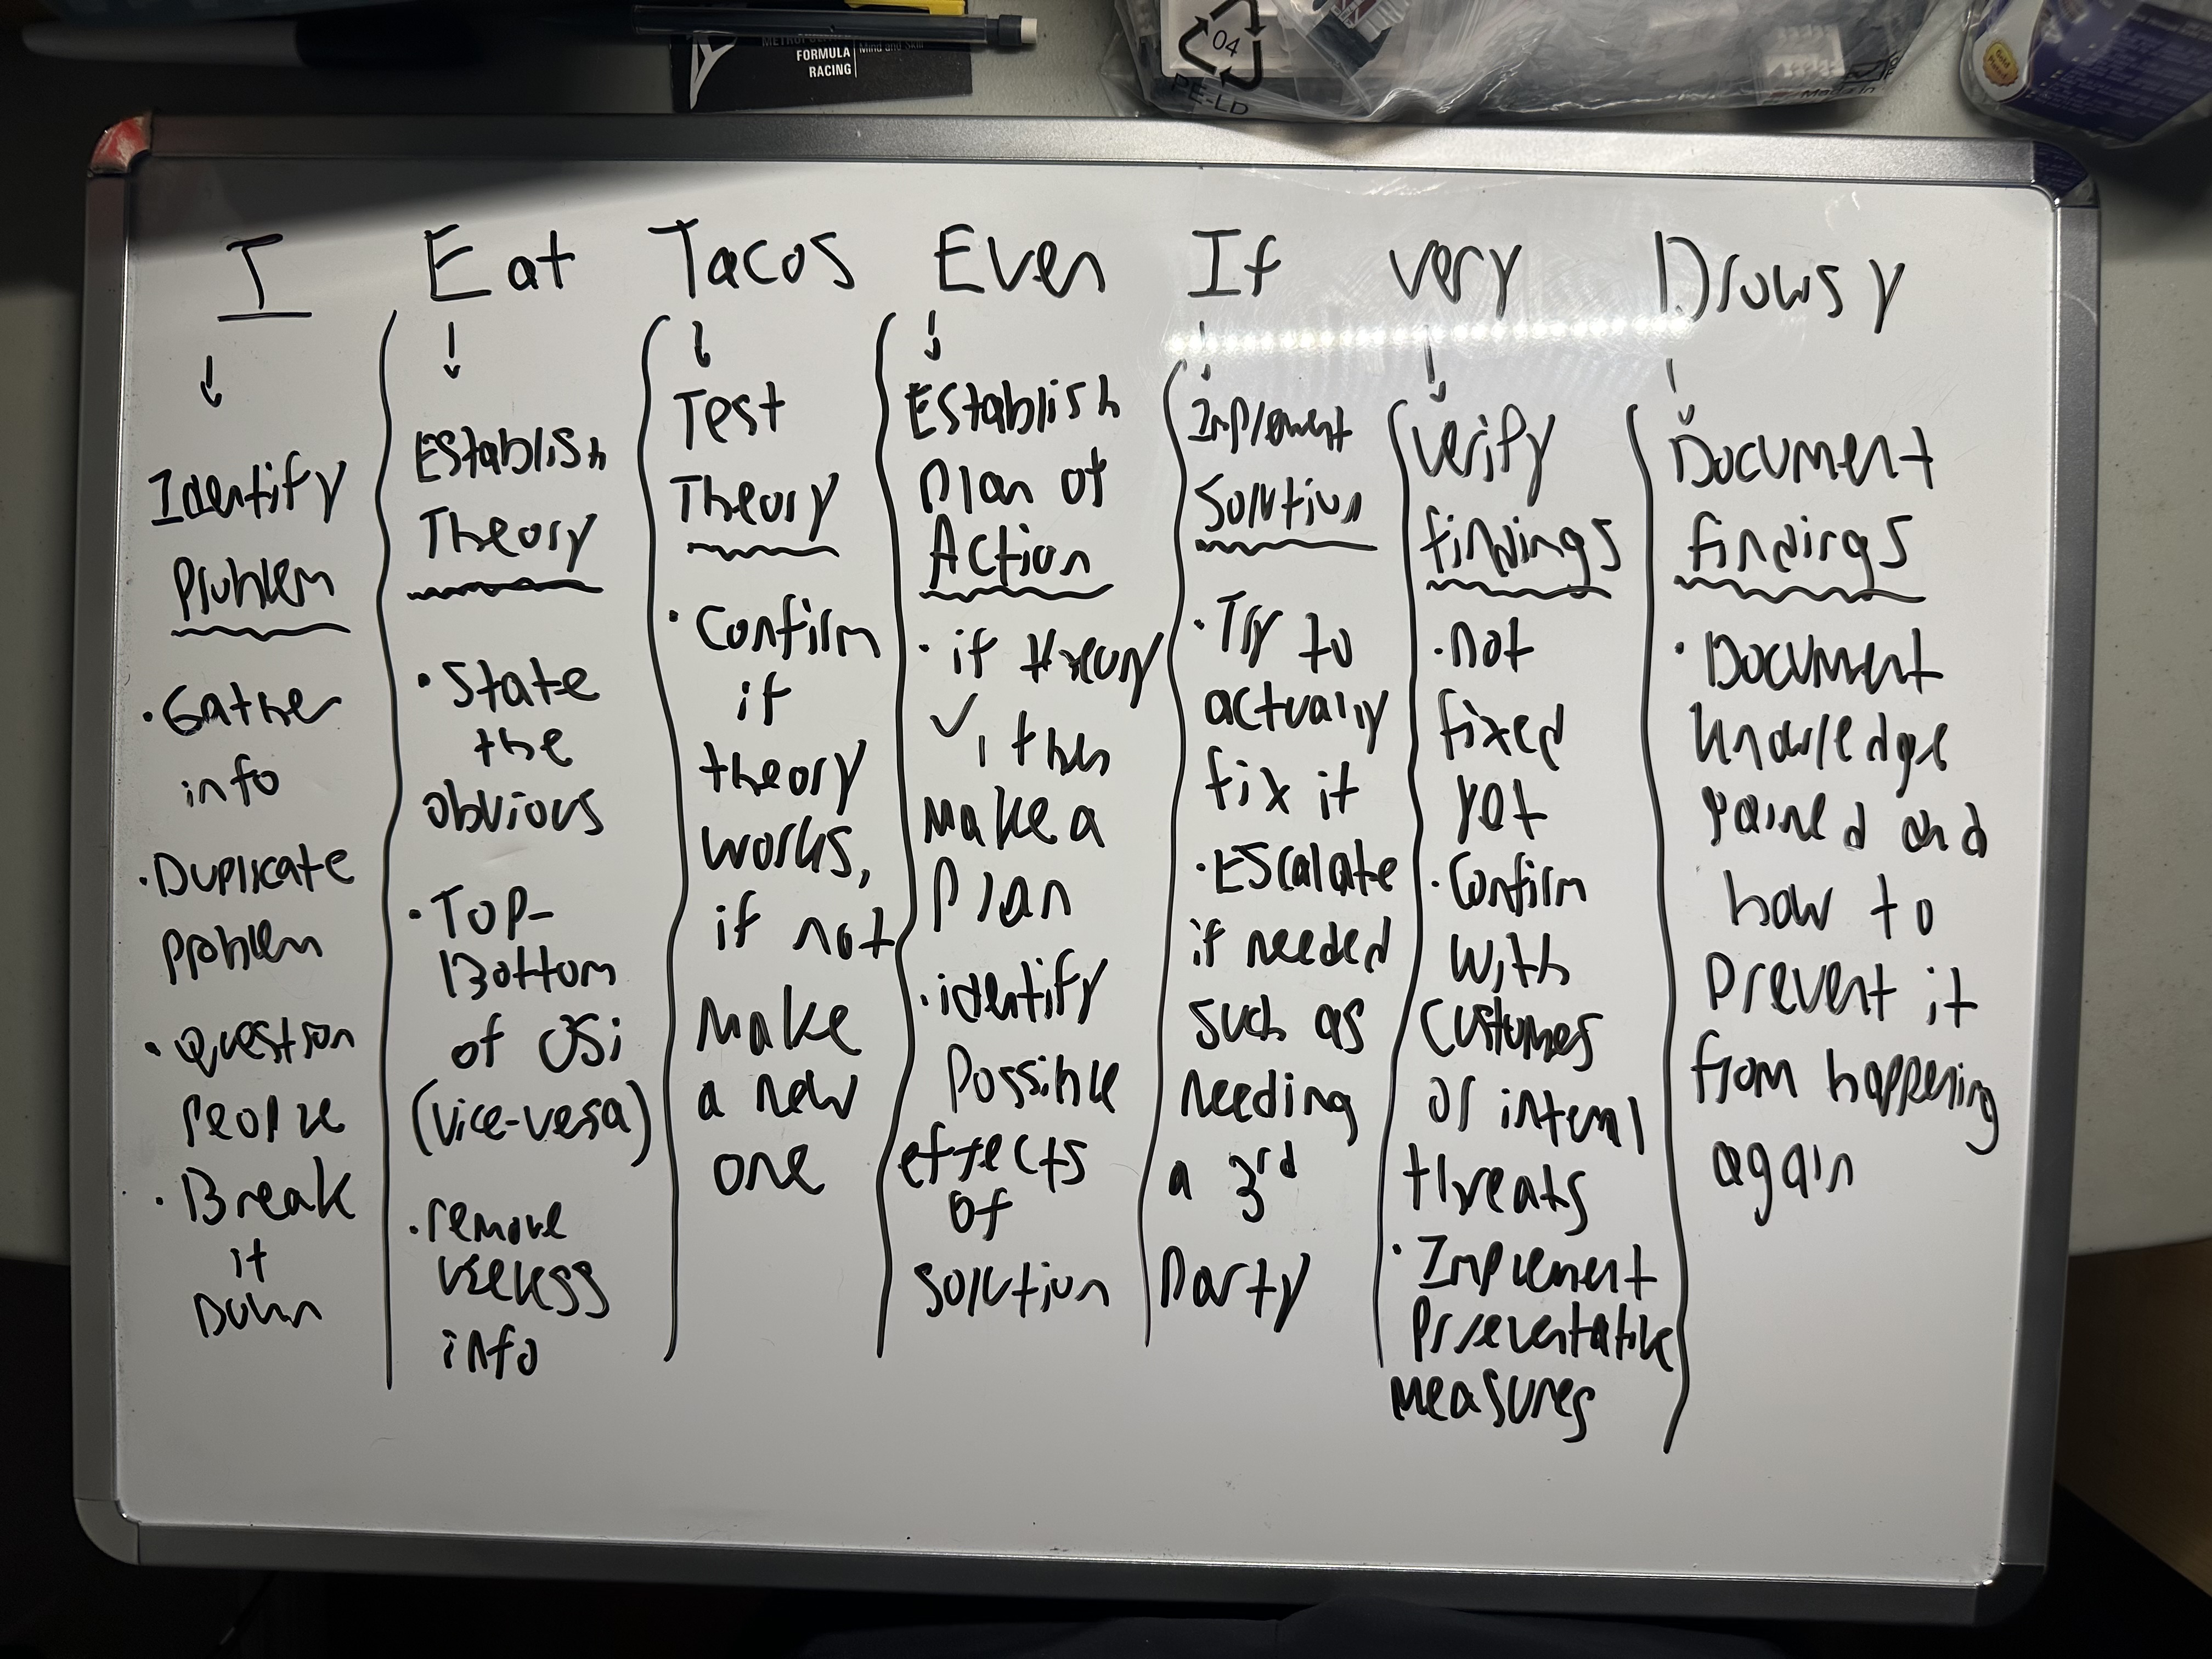 METROPOLITAN
FORMULA
RACING
Mind and Skill
04
PE-LD
Made In
Gold
Plated
I Eat Tacos Even If very Drowsy
Identify
Problem
• Gather
info
• Duplicate
problem
• Question
people
• Break
it
Down
Establish
Theory
• State
the
obvious
• Top-
Bottom
of OSi
(vice-versa)
• remove
useless
info
Test
Theory
• Confirm
if
theory
works,
if not
Make
a new
one
Establish
Plan of
Action
• if theory
✓, then
Make a
Plan
• identify
Possible
effects
of
solution
Implement
Solution
• Try to
actually
fix it
• Escalate
if needed
such as
needing
a 3rd
Party
verify
findings
• not
fixed
yet
• Confirm
with
customers
or internal
threats
• Implement
Prreventative
measures
Document
findings
• Document
knowledge
gained and
how to
Prevent it
from happening
again